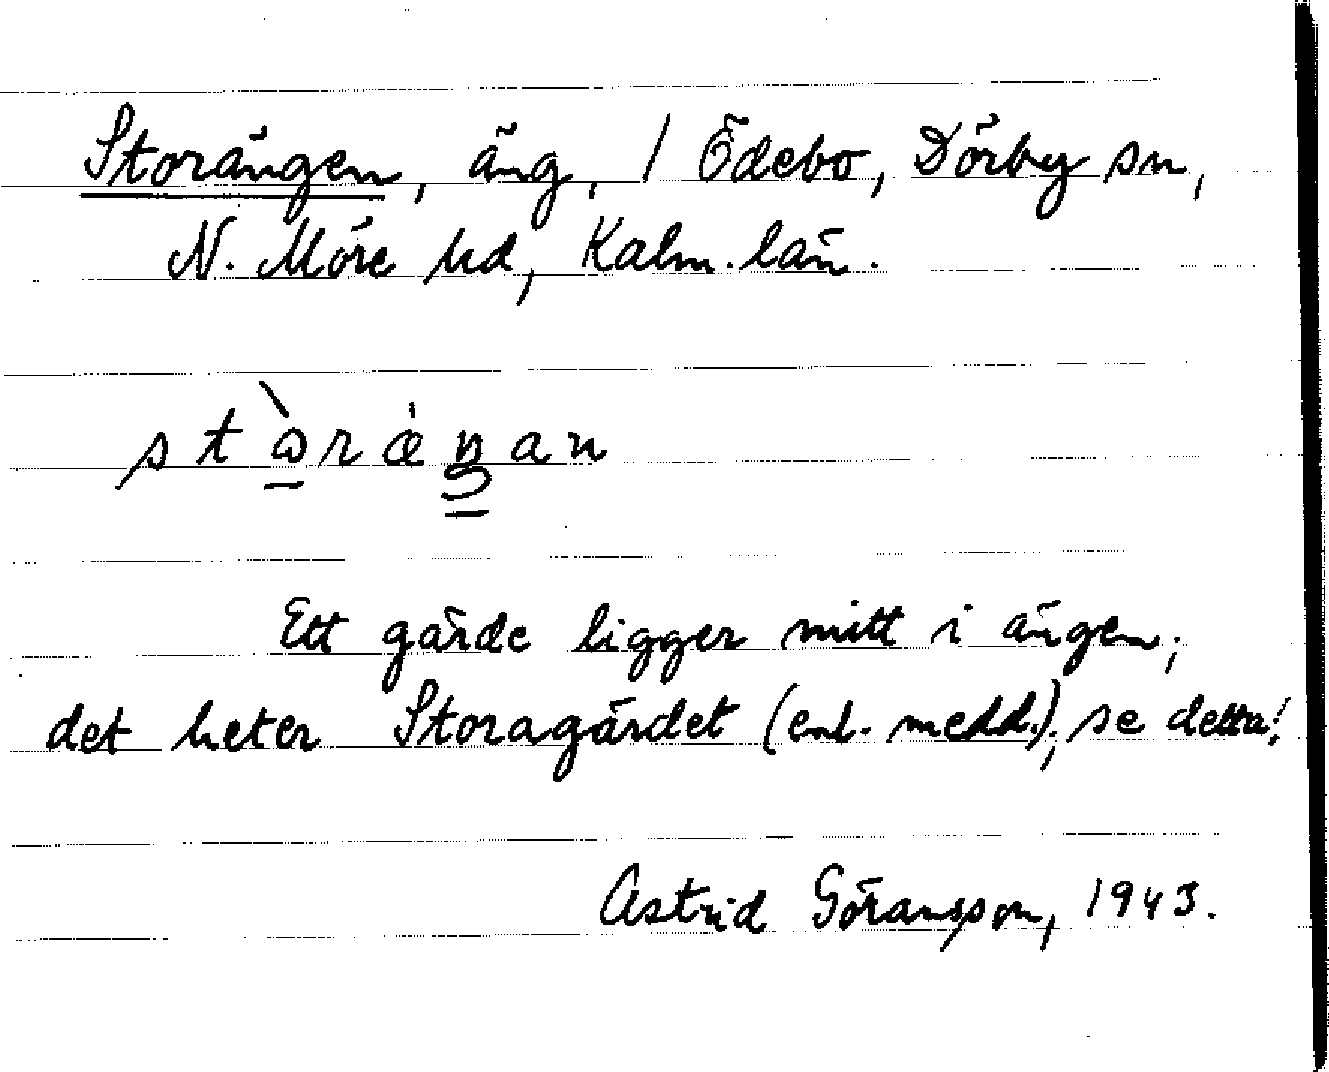 Storängen, äng, / Ödebo, Dörby sn,
N. Möre hd, Kalm. län.
stɷ̀ræ̍ŋan
Ett gärde ligger mitt i ängen;
det heter Storagärdet (enl. medd.); se detta!
Astrid Göransson, 1943.